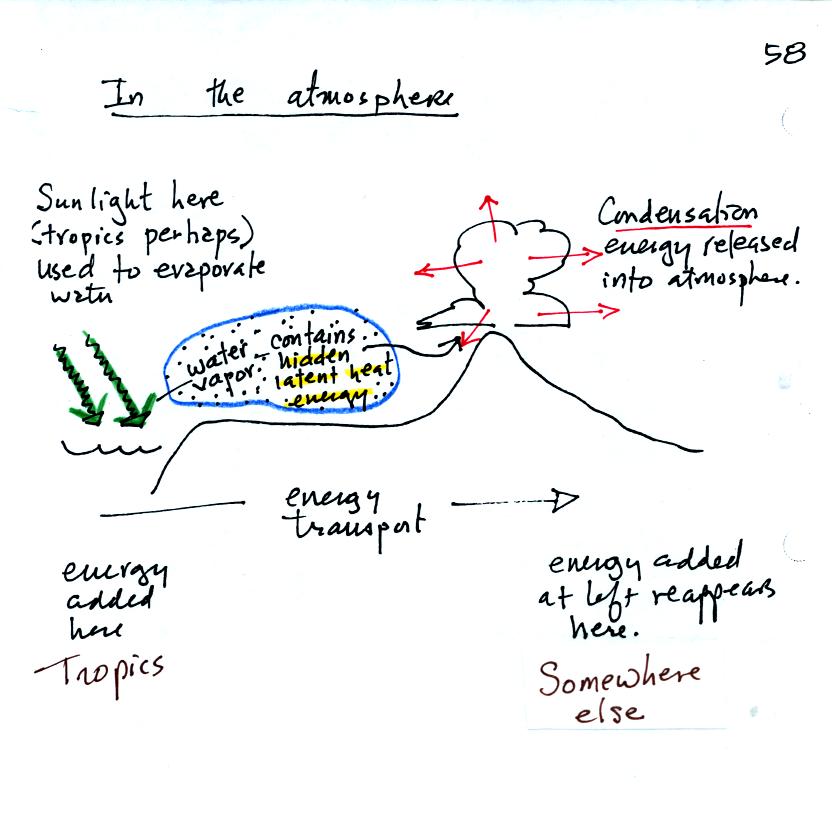 58
In the atmosphere
Sunlight here
(tropics perhaps)
used to evaporate
water
Condensation
energy released
into atmosphere.
water
vapor
contains
hidden
latent heat
energy
energy
transport
energy
added
here
Tropics
energy added
at left reappears
here.
Somewhere
else